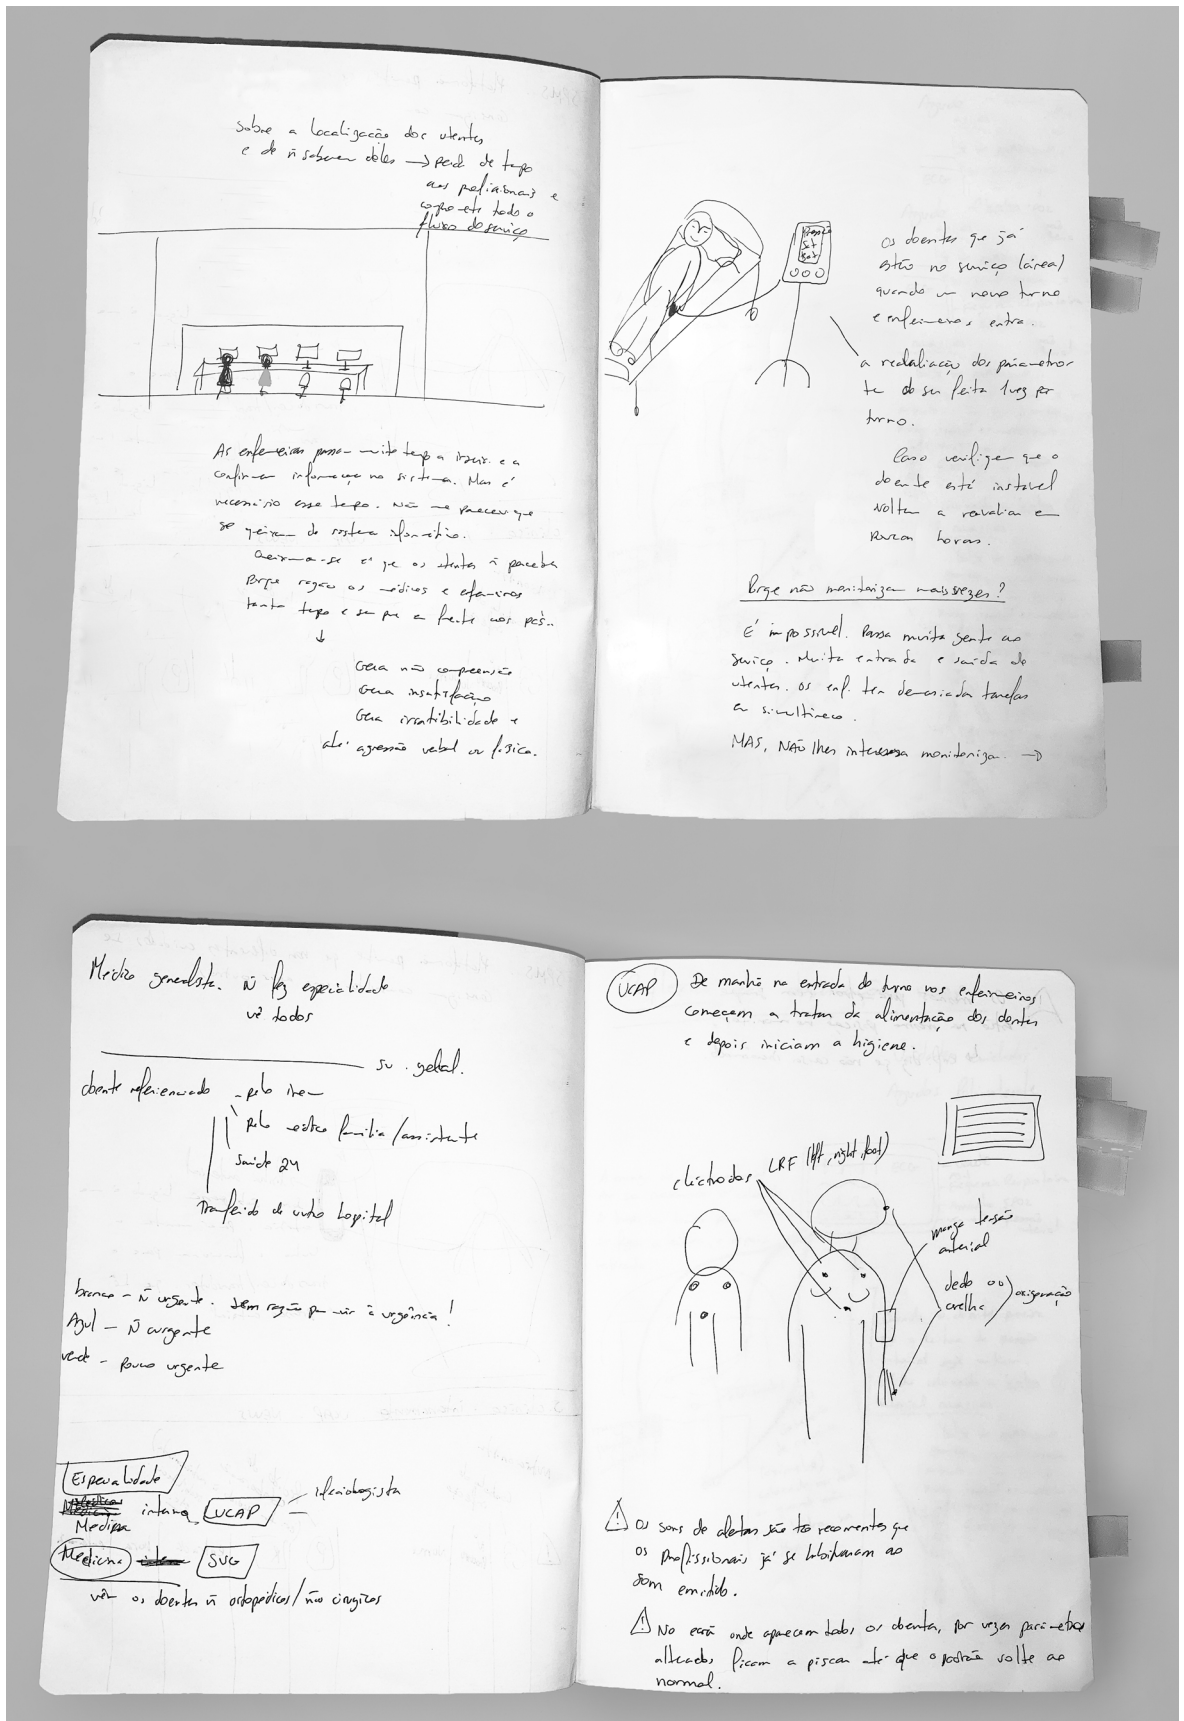 Sobre a localização dos utentes
e de ñ saberem deles → perda de tempo
aos profissionais e
compromete todo o
fluxo do serviço
As enfermeiras passam muito tempo a inserir e a
confirmar informação no sistema. Mas é
necessário esse tempo. Não me pareceu que
se queixem do sistema informático.
Queixam-se é que os utentes ñ percebem
porque razão os médicos e enfermeiros
tanto tempo e sempre em frente aos pcs..
↓
Gera não compreensão
Gera insatisfação
Gera irratibilidade e
até agressão verbal ou física.
Os doentes que já
estão no serviço (área)
quando um novo turno
e enfermeiros entra.
a reavaliação dos parâmetros
tem de ser feita 1 vez por
turno.
Caso verifiquem que o
doente está instável
voltam a reavaliar em
poucas horas.
Porque não monitorizam mais vezes?
É impossível. Passa muita gente no
serviço. Muita entrada e saída de
utentes. Os enf. têm demasiadas tarefas
em simultâneo.
MAS, NÃO lhes interessa monitorizar →
Médico generalista. Ñ fez especialidade
vê todos
su. geral.
doente referenciado – pelo inem
pelo médico família/assistente
Saúde 24
Transferido de outro hospital
branco – Ñ urgente. Sem razão para vir à urgência!
Azul – Ñ urgente
verde – Pouco urgente
Especialidade
Medicina interna UCAP
Medicina SUG
vêm os doentes ñ ortopédicos/não cirúrgicos
UCAP De manhã na entrada do turno nos enfermeiros
começam a tratar da alimentação dos doentes
e depois iniciam a higiene.
eléctrodos LRF (left, right, foot)
manga tensão
arterial
dedo ou
orelha
oxigenação
Os sons de alertas são tão recorrentes que
os profissionais já se habituaram ao
som emitido.
No ecrã onde aparecem todos os doentes, por vezes parâmetros
alterados ficam a piscar até que o padrão volte ao
normal.